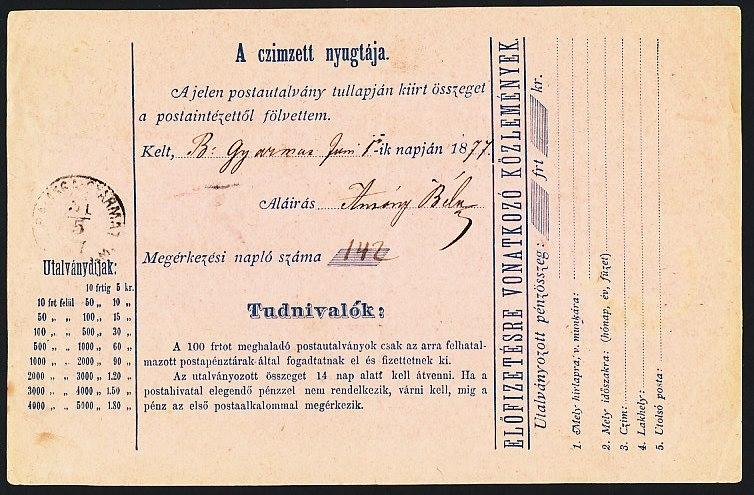 A czimzett nyugtája.
A jelen postautalvány tullapján kiirt összeget
a postaintézettől fölvettem.
Kelt, B: Gyarmat Juni 1-ik napján 1877.
Aláirás Béla
Megérkezési napló száma 142
Tudnivalók:
A 100 frtot meghaladó postautalványok csak az arra felhatal-
mazott postapénztárak által fogadtatnak el és fizettetnek ki.
Az utalványozott összeget 14 nap alatt kell átvenni. Ha a
postahivatal elegendő pénzzel nem rendelkezik, várni kell, mig a
pénz az első postaalkalommal megérkezik.
BALASSA-GYARMAT
31
5
Utalványdijak:
10 frtig 5 kr.
10 frt felül 50 „ 10 „
50 „ „ 100 „ 15 „
100 „ „ 500 „ 30 „
500 „ „ 1000 „ 60 „
1000 „ „ 2000 „ 90 „
2000 „ „ 3000 „ 1.20 „
3000 „ „ 4000 „ 1.50 „
4000 „ „ 5000 „ 1.80 „
ELŐFIZETÉSRE VONATKOZÓ KÖZLEMÉNYEK.
Utalványozott pénzösszeg: frt kr.
1. Mely hirlapra, v. munkára:
2. Mely időszakra: (hónap, év, füzet)
3. Czim:
4. Lakhely:
5. Utolsó posta: